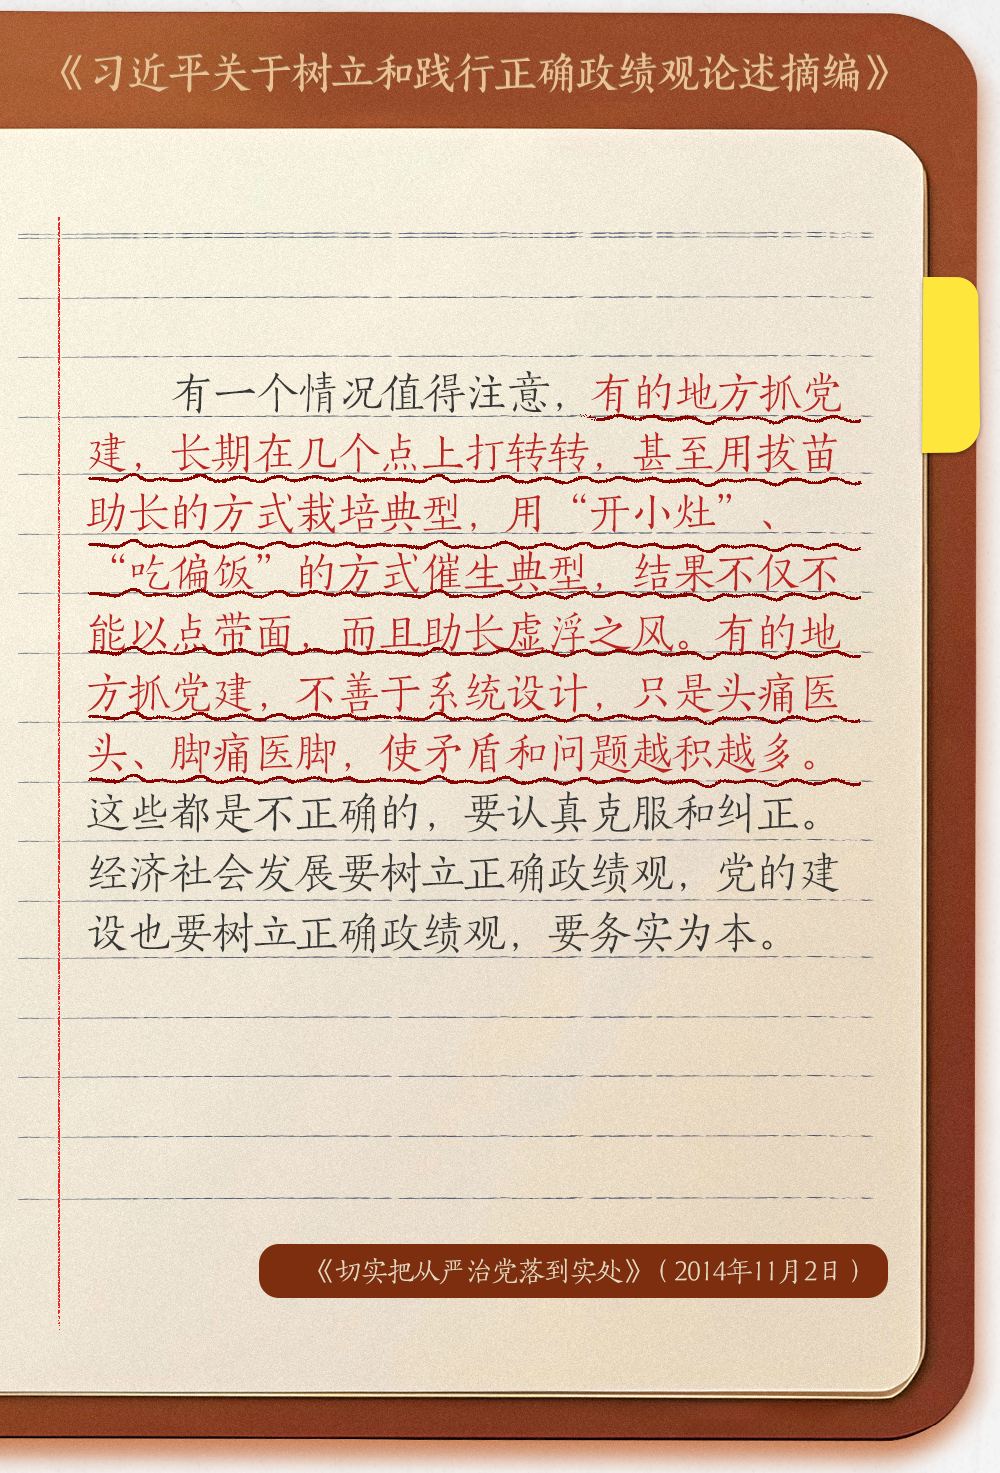 《习近平关于树立和践行正确政绩观论述摘编》
有一个情况值得注意，有的地方抓党
建，长期在几个点上打转转，甚至用拔苗
助长的方式栽培典型，用“开小灶”、
“吃偏饭”的方式催生典型，结果不仅不
能以点带面，而且助长虚浮之风。有的地
方抓党建，不善于系统设计，只是头痛医
头、脚痛医脚，使矛盾和问题越积越多。
这些都是不正确的，要认真克服和纠正。
经济社会发展要树立正确政绩观，党的建
设也要树立正确政绩观，要务实为本。
《切实把从严治党落到实处》（2014年11月2日）